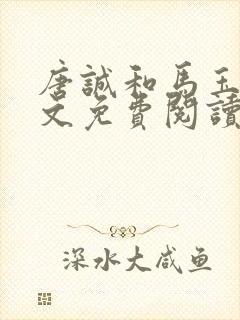 唐誠和馬玉
文免費閱讀
深水大咸鱼